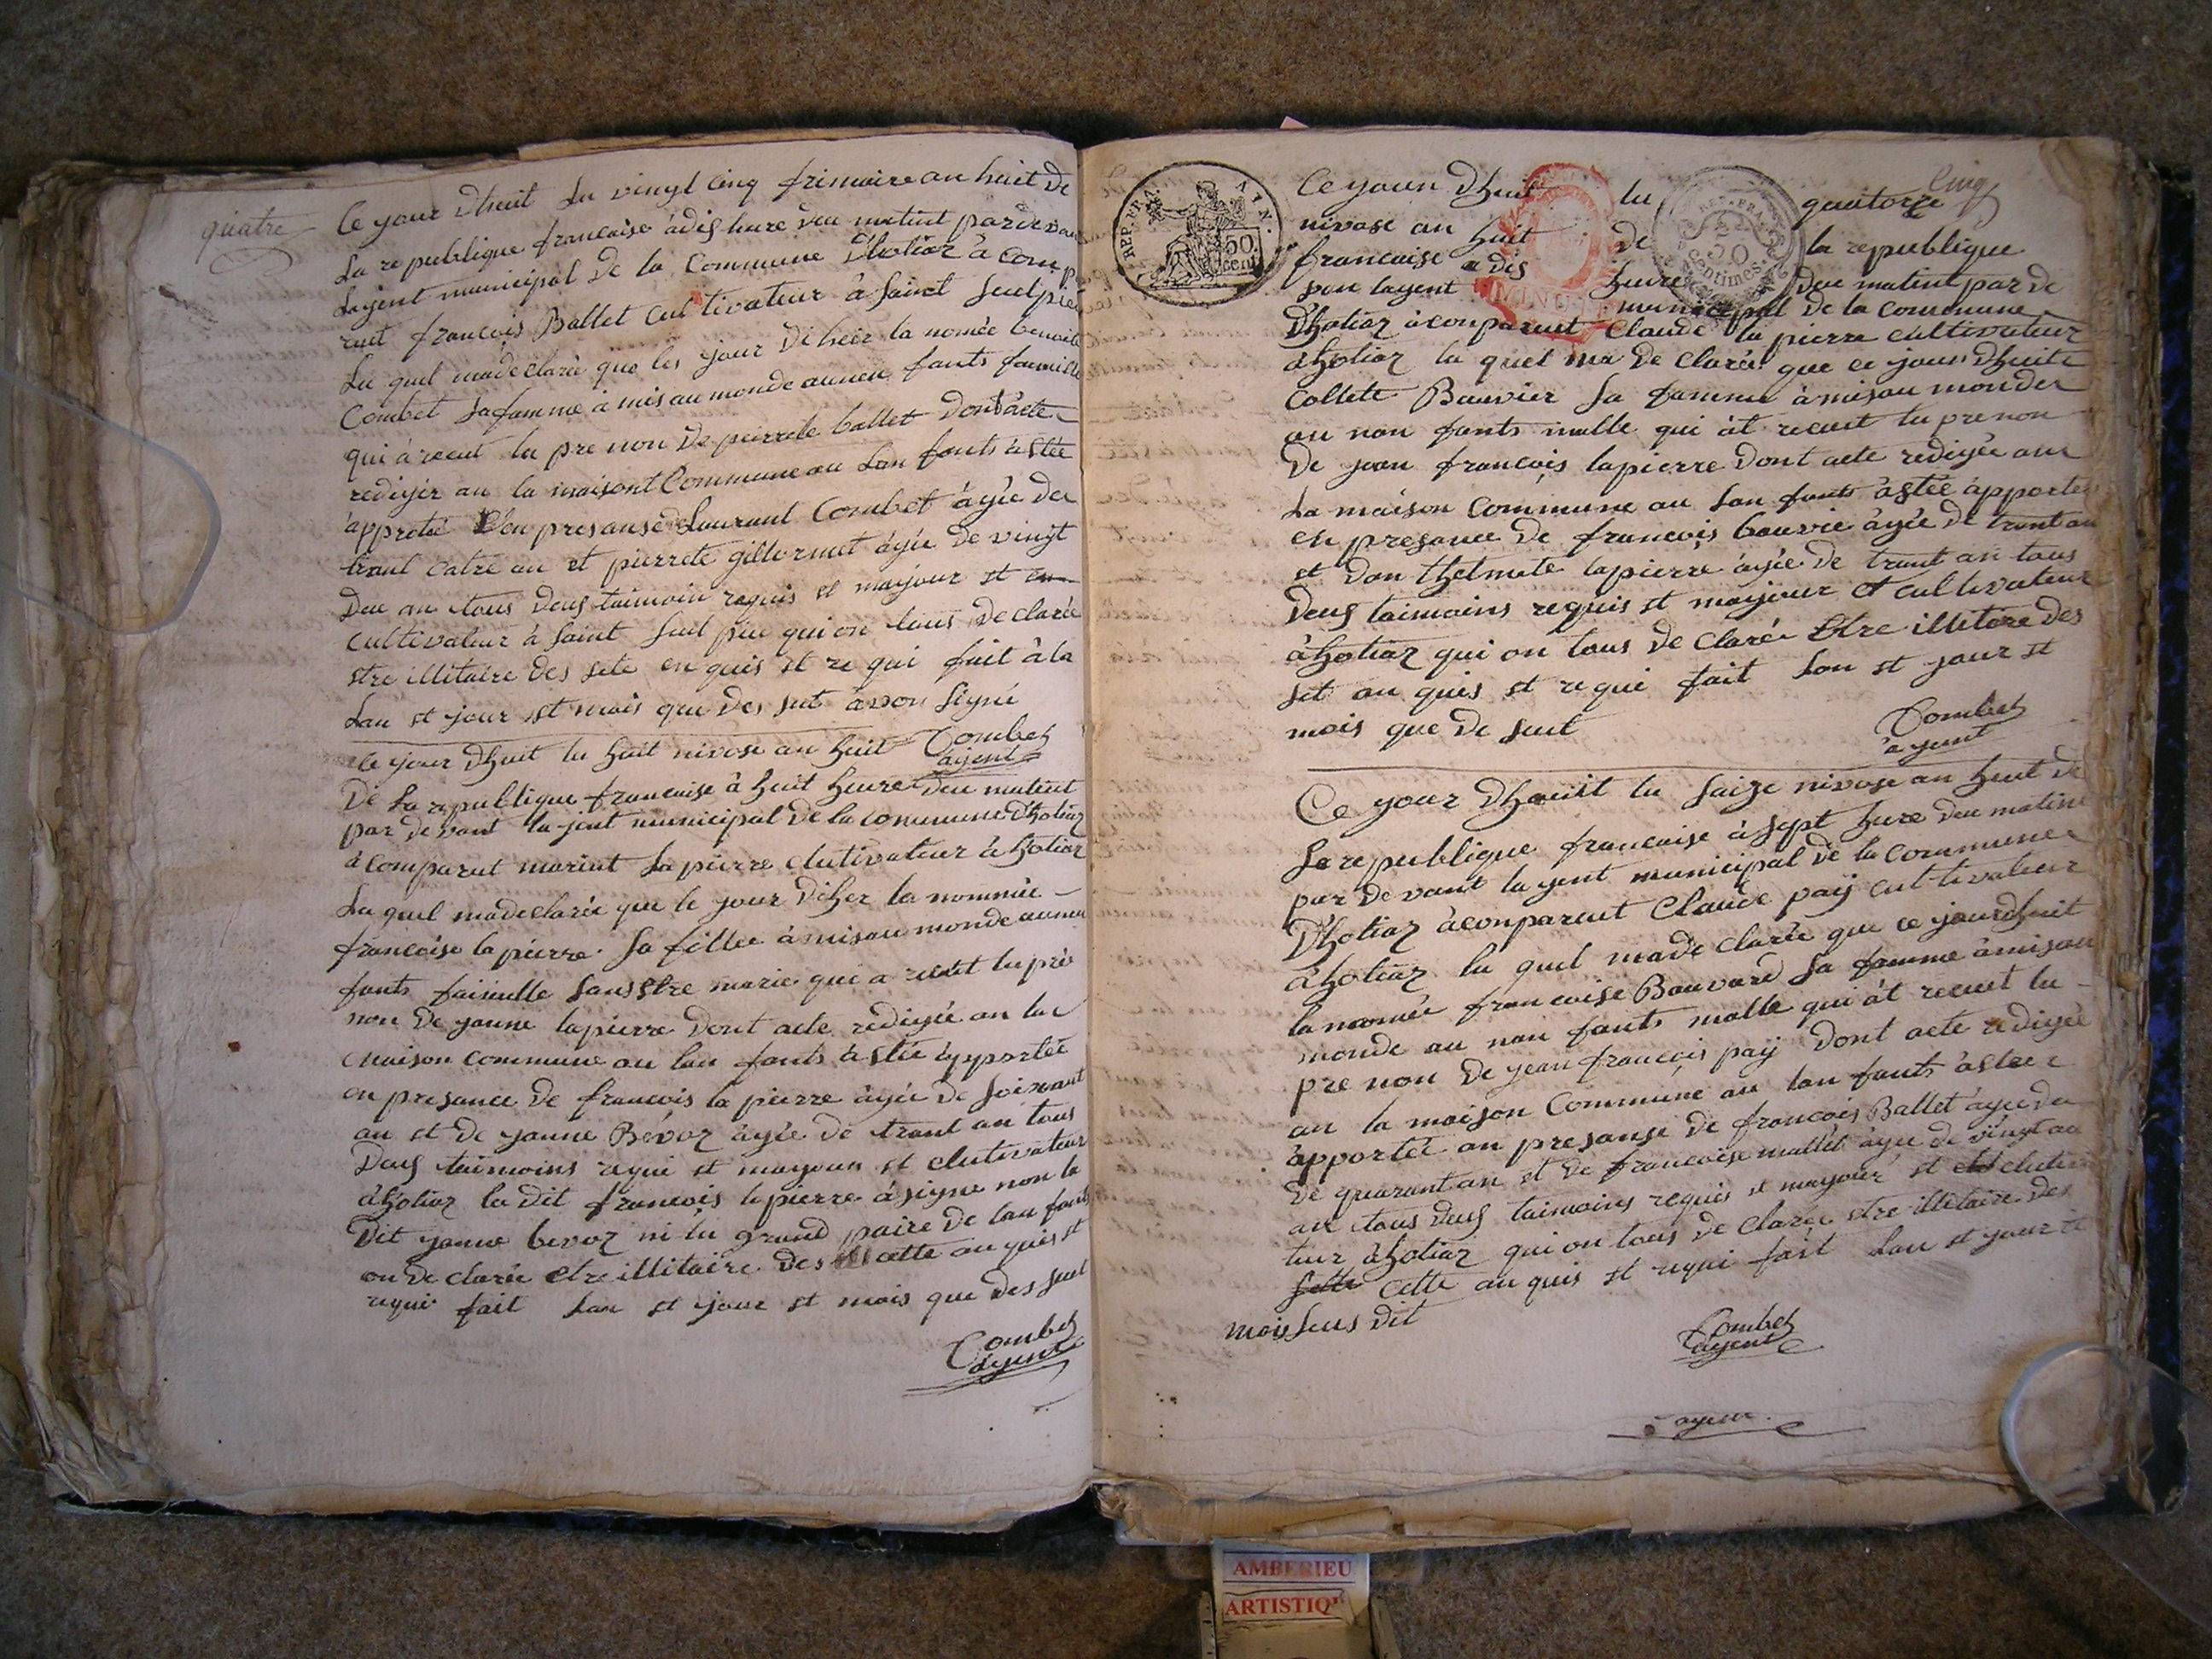 quatre
Ce jour dhuit lu vingt cinq frimaire an huit de
La republique francaise à dis hure deu matint par deva
Lagent municipal de la commune dhotiaz à comp
rait francois Ballet cultivateur à saint seulpie
Lu quel madeclarée que les jour de hier la nomée benoite
Combet sa famme à mis au monde auneu fants faimille
qui à reçut lu pre non de peirrete ballet dont acte
redigér au la maisont Commune ou lan fants à stée
approtée en presanse de Laurant Combet àgée de
trant catre an et pierrete gilbermet àgée de vingt
deu an tous deus taimoin requis et majour et
cultivateur à saint seul pie qui on tous declarée
etre illitaire des sete en quis et re qui fait à la
Lan et jour et mois que des sut avon signé
Combet
agent
Ce jour dhuit lu huit nivose an huit
De La republique francaise à huit heure deu matint
par devant lajent municipal de la commune dhotiaz
à comparut mariut Lapierre clutivateur à hotiaz
Lu quel madeclarée que le jour diher la nommée
francoise lapierre sa fillee à mis au monde auneu
fants faimille sans etre marie qui a reçut lu pré
non de janne lapierre dont acte redigée an la
maison commune ou lan fants à stée apportée
en presance de francois la pierre àgée de soixant
an et de janne Bevoz àgée de trant an tous
Deus taimoins requi et mayour et clutivateur
à hotiaz lu dit francois lapierre à signe non la
Dit janne bevoz ni lu grand paire de lan fants
on de clarée etre illitaire des cette an quis et
requi fait Lan et jour et mois que des sut
Combet
agent
Cinq
REP. FRA.
AYN.
50
cent
REP. FRAN.
50
centimes
Ce jour dhuit lu quatorze
nivose an huit de la republique
francaise a dis hure deu matint par de
van lagent municipal de la commune
Dhotiaz àconparut Claude la pierre cultivateur
àhotiaz lu quel ma de clarée que ce jour dhuit
Collete Bouvier sa famme àmis au mondeu
au nan fants malle qui àt recut lu prenon
De jean francois lapierre dont acte redigée an
La maison commune ou lan fants àstée àpportée
en presance de francois bouvie àgée de trant an
et dan thelmete lapierre àgée de trant an tous
Deus taimoins requis et mayour et cultivateur
àhotiaz qui on tous de clarée etre illitaire des
set an quis et requi fait Lan et jour et
mois que de sut
Combet
agent
Ce jour dhuit lu saize nivose an huit de
La republique francaise à sept hure deu matint
par devant lagent municipal de la commune
Dhotiaz àconparut Claude paÿ cultivateur
àhotiaz lu quel made clarée que ce jourdhuit
la nomée francoise Bouvard sa famme àmis au
monde au nan fants malle qui àt recut lu
pre non de jean francois paÿ dont acte redigée
an la maison commune ou lan fants àstee
àpportée an presanse de francois Ballet àgée de
De quarant an et de francoise mallet àgée de vingt
an tous deus taimoins requis et mayour et clutiva
teur àhotiaz qui on tous de clarée etre illitaire des
cette an quis et requi fait Lan et jour et
mois sus dit
Combet
agent
AMBERIEU
ARTISTIQ